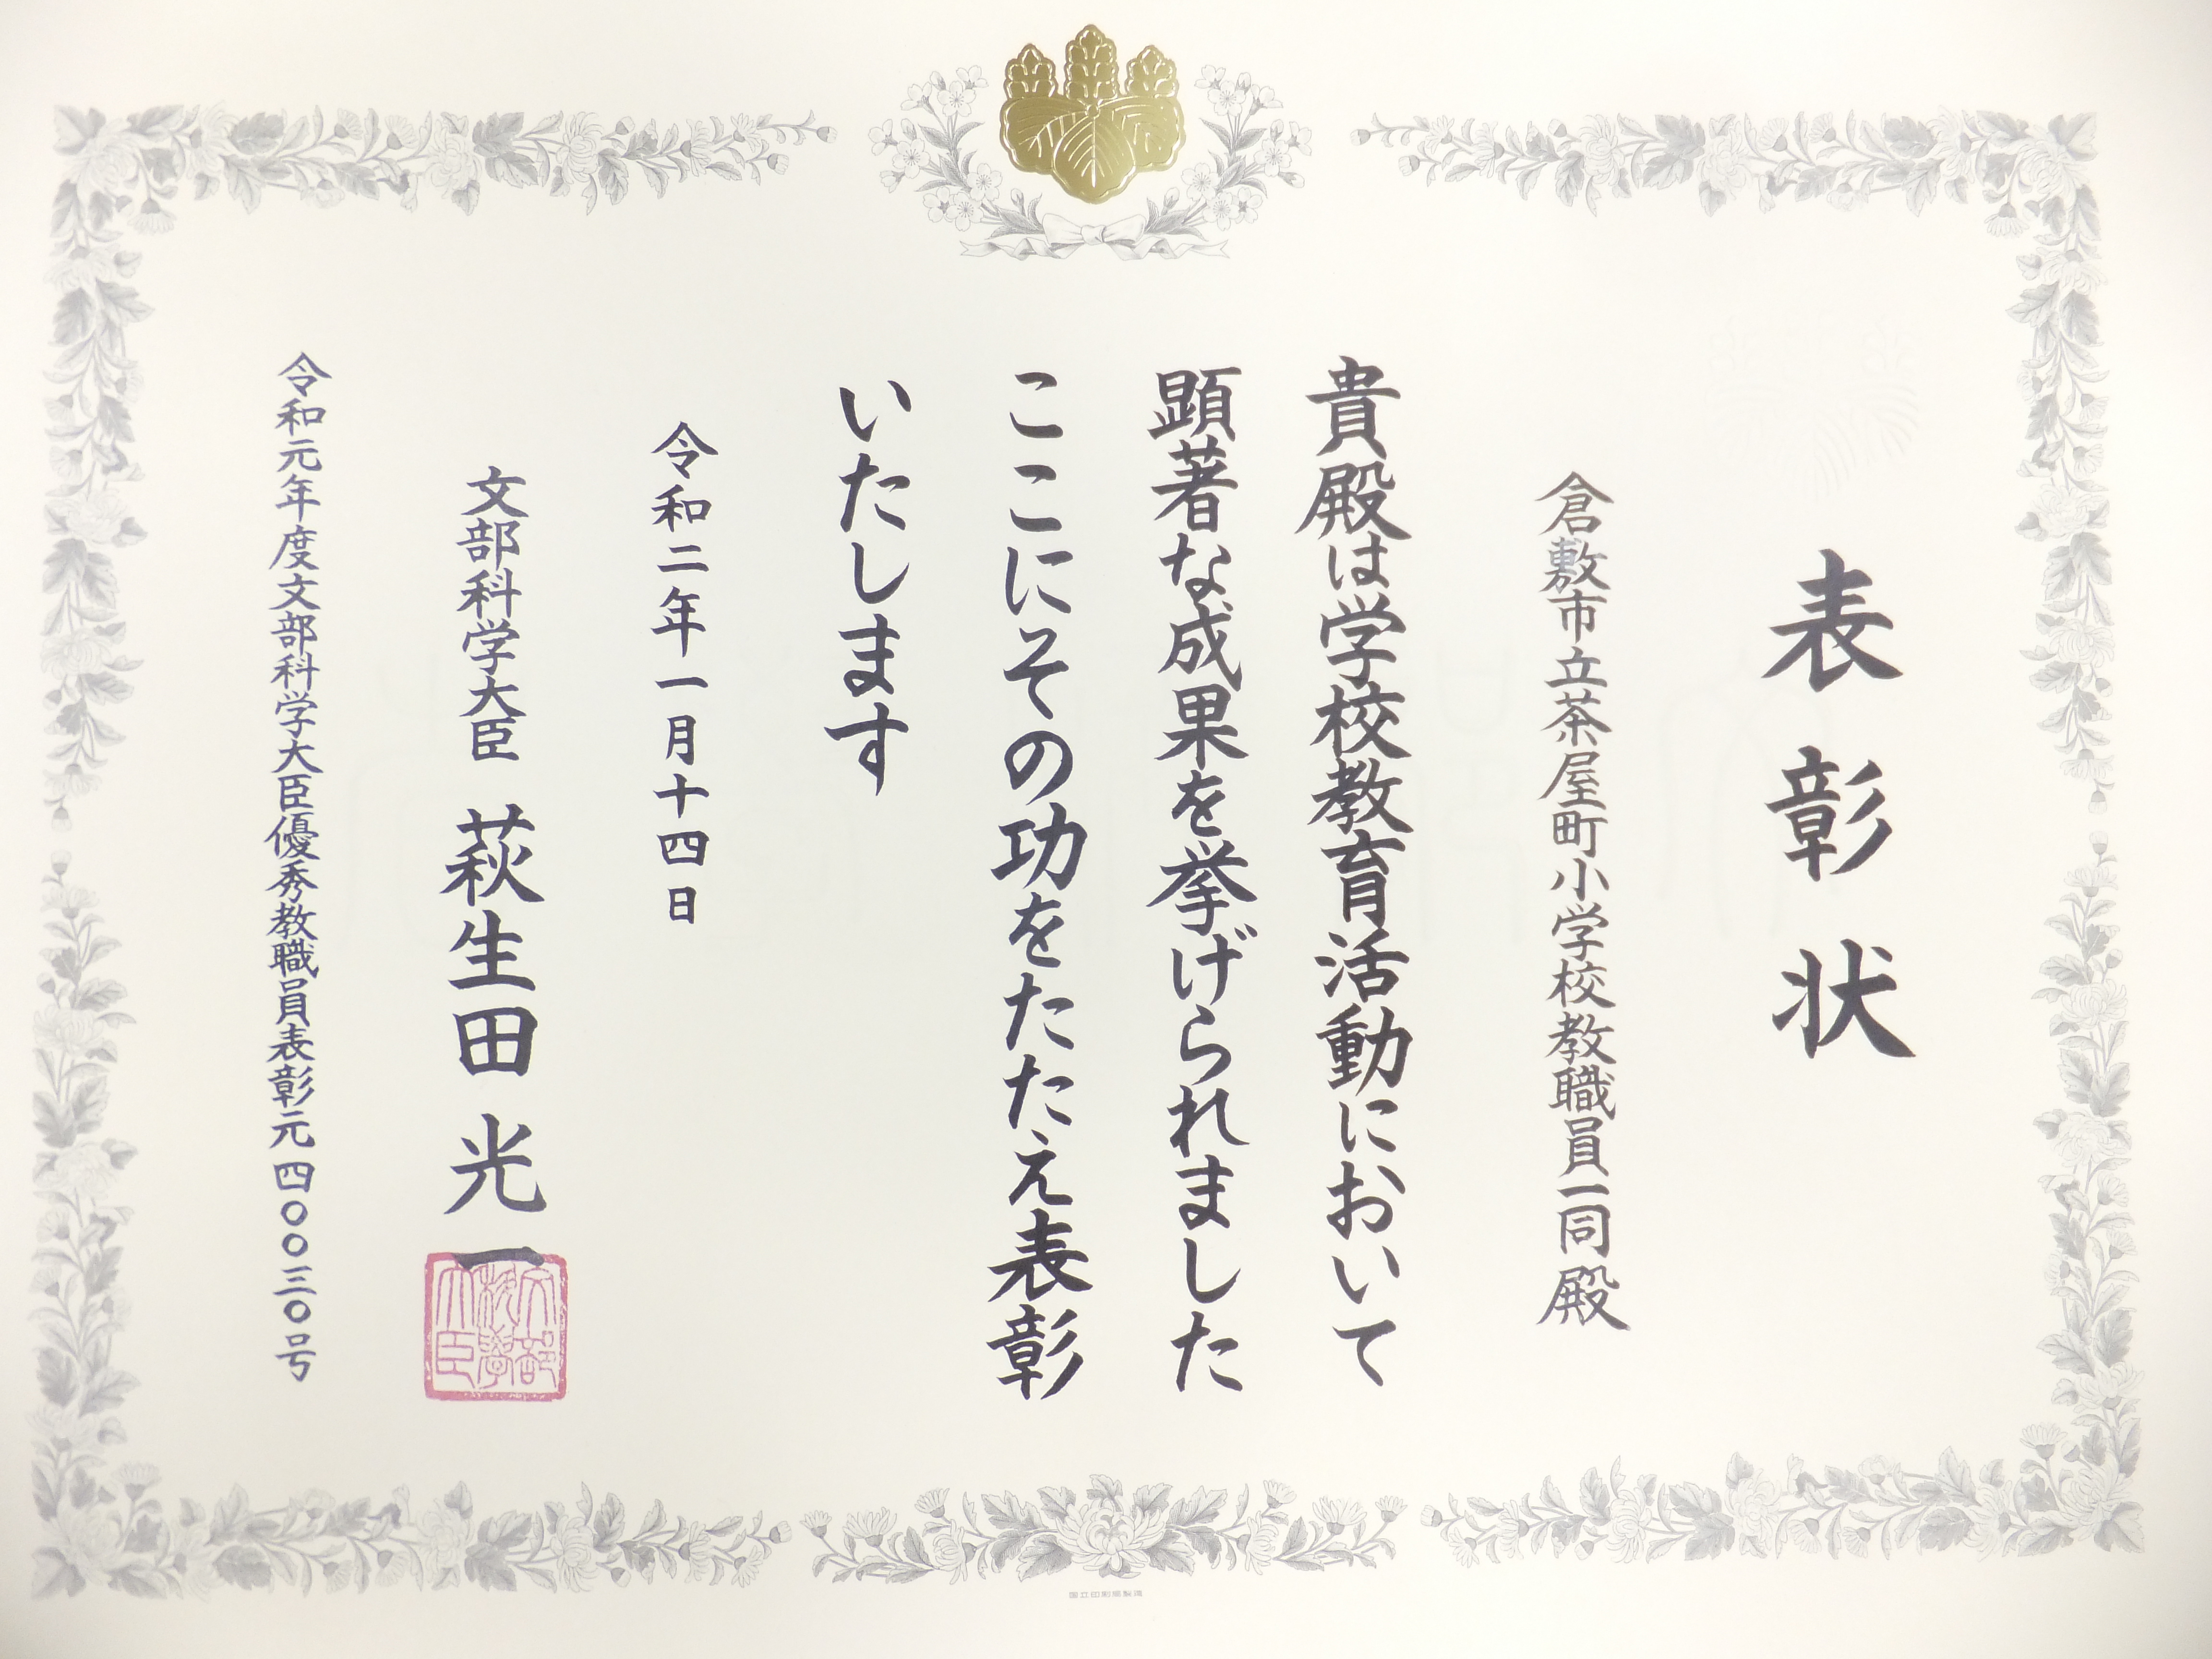 表彰状
倉敷市立茶屋町小学校教職員一同殿
貴殿は学校教育活動において
顕著な成果を挙げられました
ここにその功をたたえ表彰
いたします
令和二年一月十四日
文部科学大臣 萩生田光一
文部科学大臣
令和元年度文部科学大臣優秀教職員表彰元四〇〇三〇号
国立印刷局製造